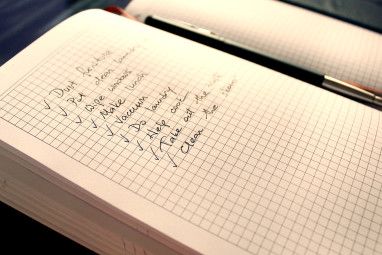 ✓ Dust furniture
✓ Put clean laundry
✓ Wipe windows
✓ Make lunch
✓ Vacuum
✓ Do laundry
✓ Help cook
✓ Take out the
✓ Clean the